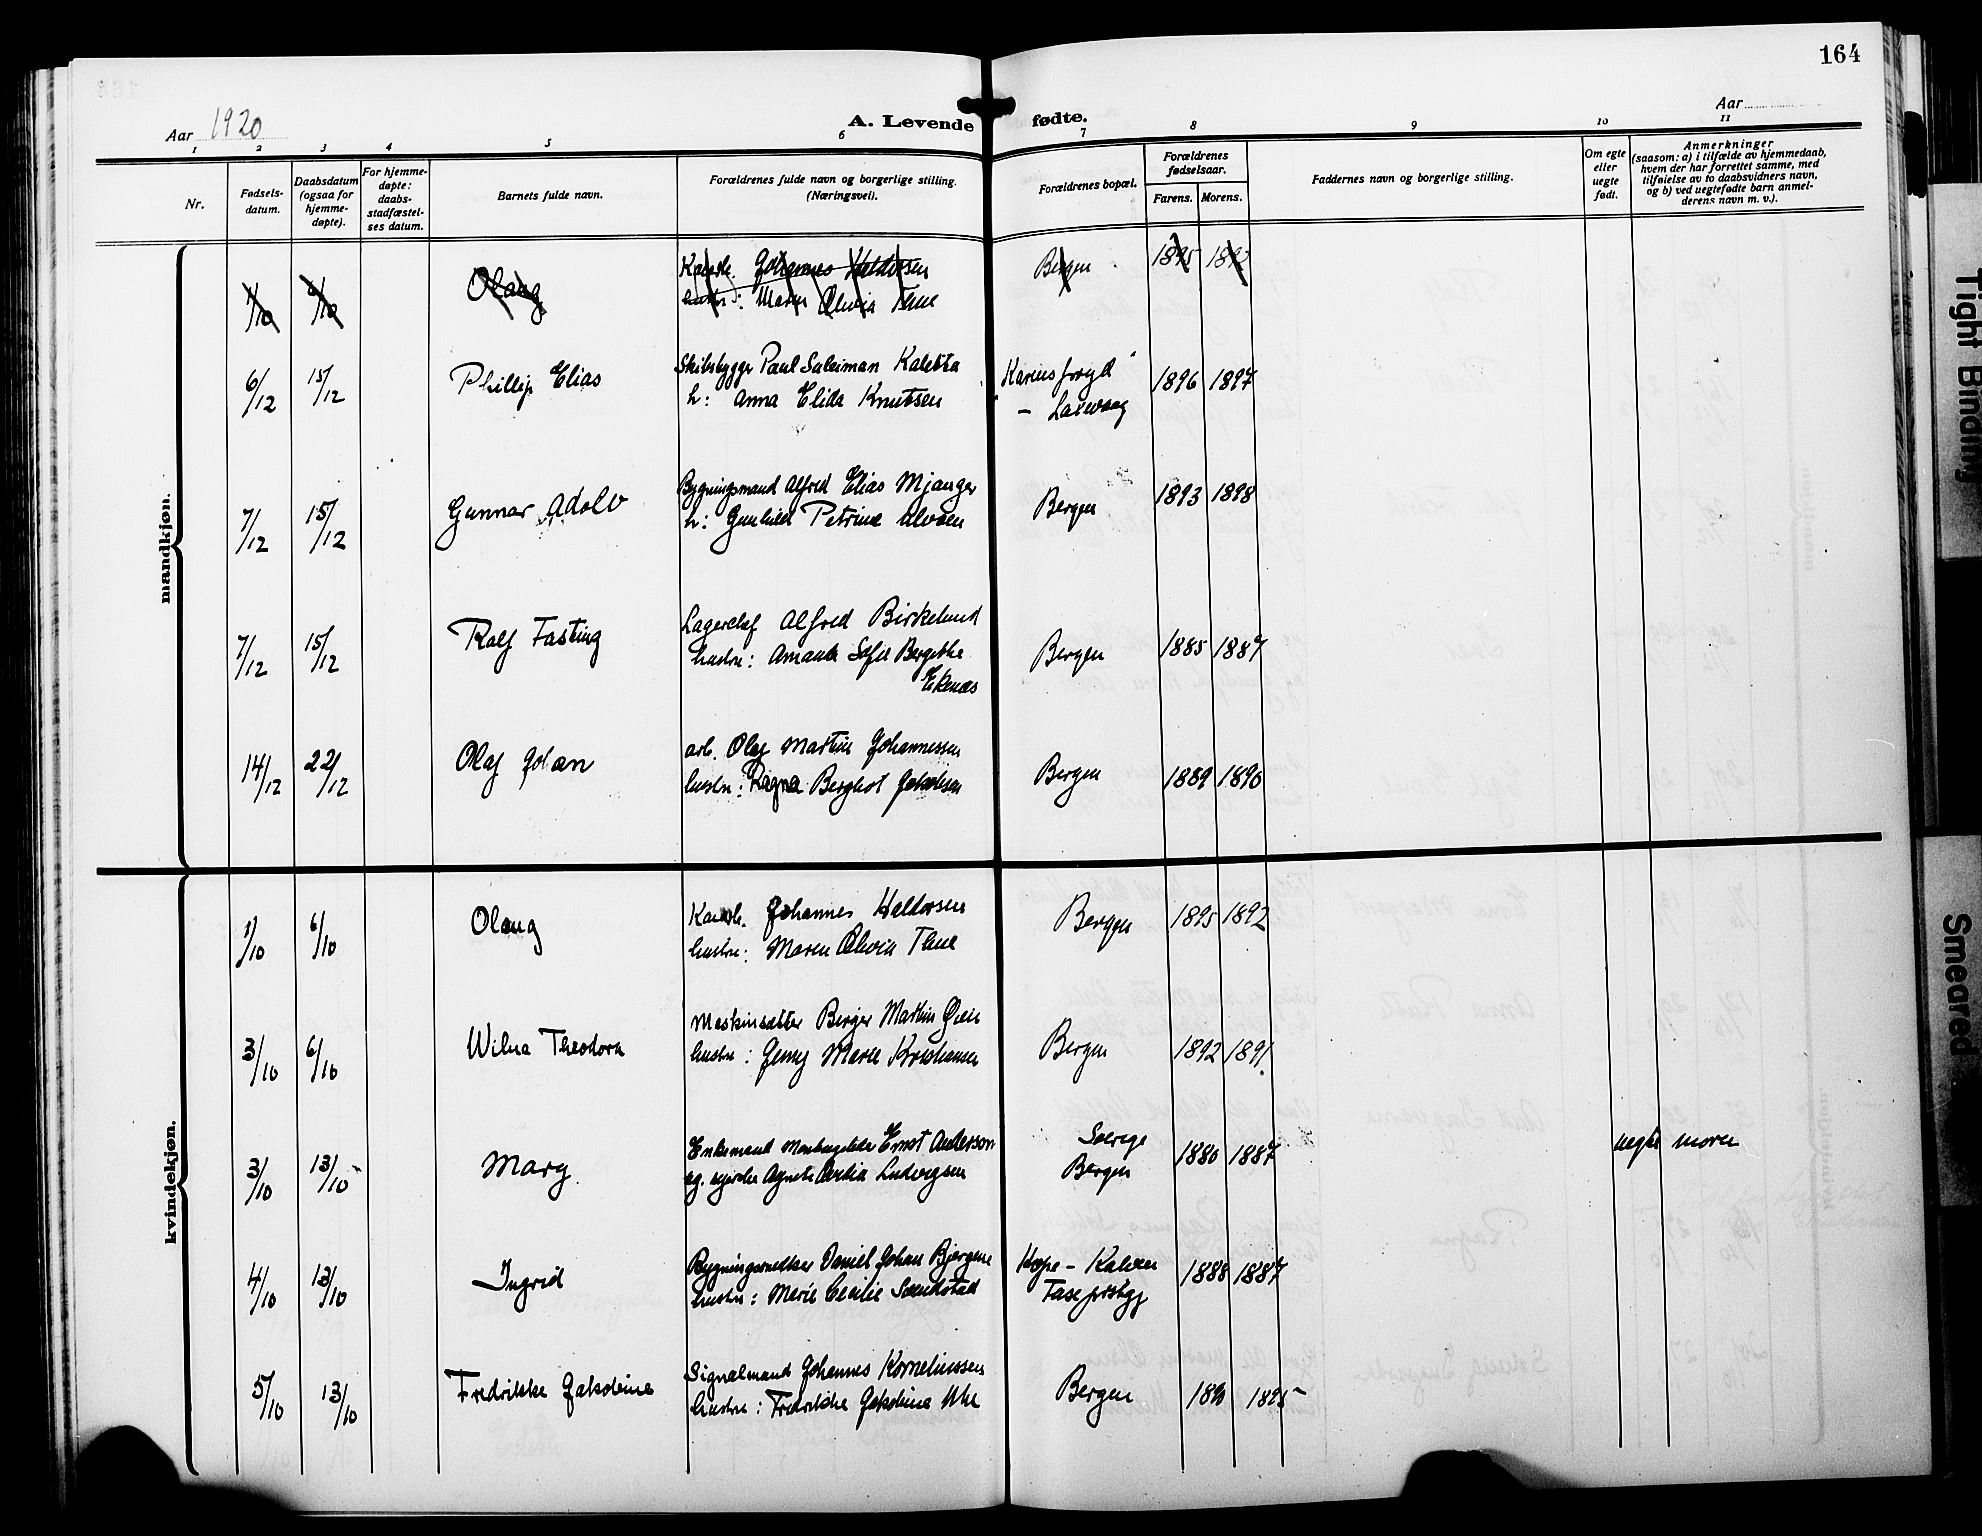 164
Aar 1920
A. Levende fødte.
Aar
1 2 3 4 5 6 7 8 9 10 11
Nr.
Fødsels-
datum.
Daabsdatum
(ogsaa for
hjemme-
døpte).
For hjemme-
døpte:
daabs-
stadfæstel-
ses datum.
Barnets fulde navn.
Forældrenes fulde navn og borgerlige stilling.
(Næringsvei).
Forældrenes bopæl.
Forældrenes
fødselsaar.
Farens. Morens.
Faddernes navn og borgerlige stilling.
Om egte
eller
uegte
født.
Anmerkninger
(saasom: a) i tilfælde av hjemmedaab,
hvem der har forrettet samme, med
tilføielse av to daabsvidners navn,
og b) ved uegtefødte barn anmel-
derens navn m. v.).
mandkjøn.
1/10 6/10 Olaug
Johannes Haldorsen
hustru: Maren Olivia Thue
Bergen 1895 1892
6/12 15/12 Phillip Elias
Skibsbygger Paul Suleiman Kaletta
h: Anna Elida Knutsen
Kariusfryd
- Laxevaag
1896 1897
7/12 15/12 Gunnar Adolv
Bygningsmand Alfred Elias Mjanger
h: Gunhild Petrine Alvøen
Bergen 1893 1898
7/12 15/12 Ralf Fasting
Lagerchef Alfred Birkelund
hustru: Amanda Sofie Bergithe
Ekenæs
Bergen 1885 1887
14/12 22/12 Olaf Johan
arb. Olaf Martin Johannessen
hustru: Ragna Berghot Jakobsen
Bergen 1889 1890
kvindekjøn.
1/10 6/10 Olaug
Johannes Haldorsen
hustru: Maren Olivia Thue
Bergen 1895 1892
3/10 6/10 Wilma Theodora
Maskinsætter Berger Martin Øien
hustru: Jenny Marie Kristiansen
Bergen 1892 1891
3/10 13/10 Mary
Enkemand Ernst Anderson
og Agnete Ludvigsen
Sverige
Bergen
1880 1887 uegte moren
4/10 13/10 Ingrid
Bygningssnedker Daniel Johan Bjørgene
hustru: Marie Cecilie Sandstad
Hope -
1888 1887
5/10 13/10 Fredrikke Jakobine
Signalmand Johannes Korneliussen
hustru: Fredrikke Jakobine
Bergen 1895
Tight Binding
Smeared